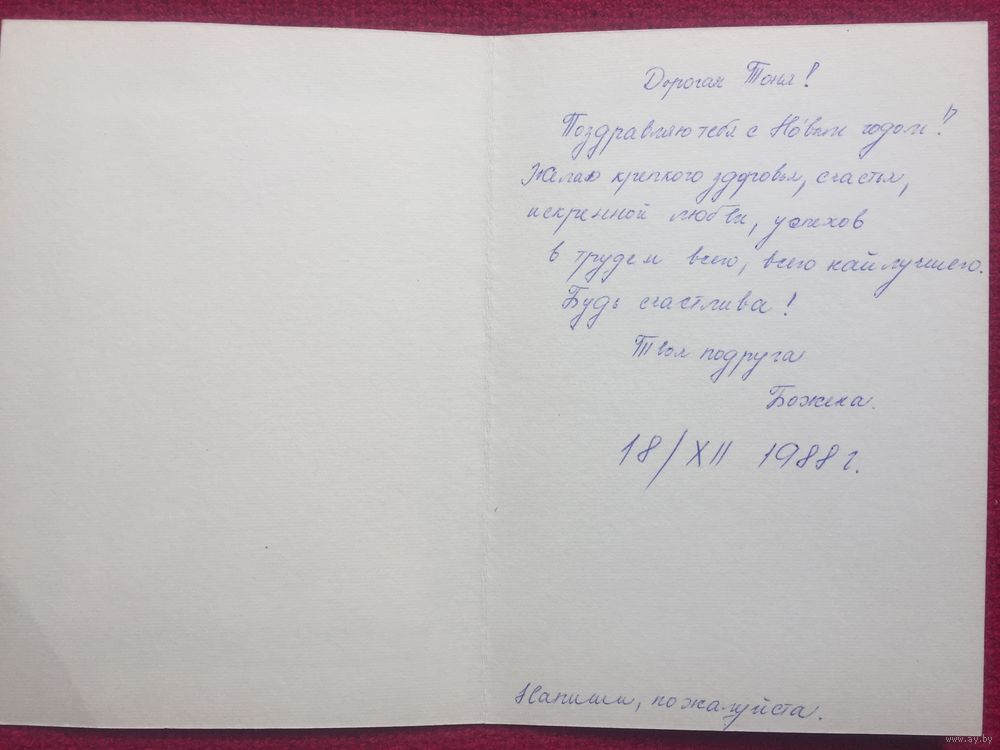 Дорогая Тоня!
Поздравляю тебя с Но́вым годом!
Желаю крепкого здоровья, счастья,
искренной любви, успехов
в труде и всего, всего найлучшего.
Будь счастлива!
Твоя подруга
Божена.
18/XII 1988 г.
Напиши, пожалуйста.
www.ay.by